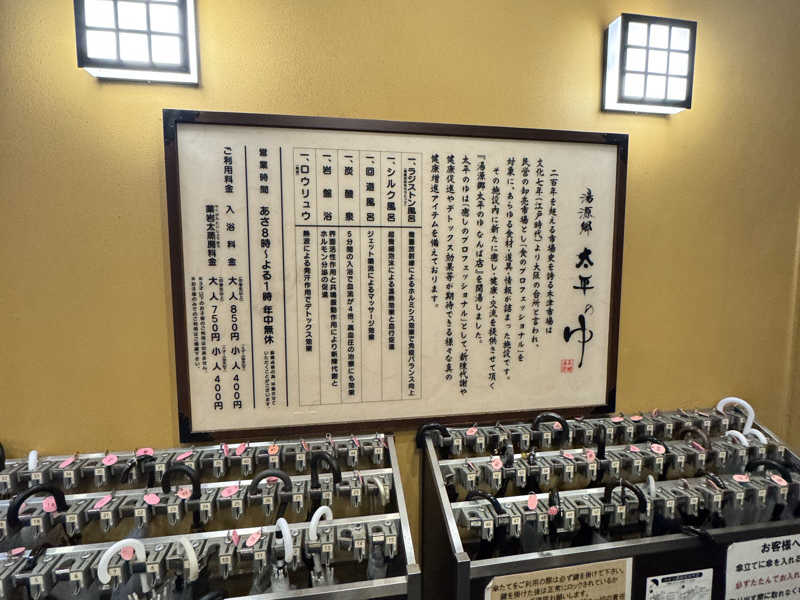 湯源郷 太平のゆ
二百年を超える市場史を持つ木津市場は
文化七年（江戸時代）より大阪の台所と言われ、
民営の卸売市場とし『食のプロフェッショナル』を
対象に、あらゆる食材・道具・情報が詰まった施設です。
その施設内に新たに癒し・健康・交流を提供させて頂く
『湯源郷太平のゆ なんば店』を開湯しました。
太平のゆは『癒しのプロフェッショナル』として、新陳代謝や
健康促進やデトックス効果等が期待できる様々な真の
健康増進アイテムを備えております。
一、ラジストン風呂
微量放射線によるホルミシス効果で免疫バランス向上
一、シルク風呂
超微細泡沫による温熱効果と血行促進
一、回遊風呂
ジェット噴流によるマッサージ効果
一、炭酸泉
5分間の入浴で血流が4倍、高血圧の治療にも効果
一、岩盤浴
界面活性作用と共鳴振動作用により新陳代謝と
ホルモン分泌の促進
一、ロウリュウ
熱波による発汗作用でデトックス効果
営業時間 あさ8時〜よる1時 年中無休
ご利用料金 入浴料金 大人 850円 小人 400円
薬岩太蒸房料金 大人 750円 小人 400円
傘たてをご利用の際は必ず鍵を掛けて下さい。
鍵を掛けた後は正常にロックされているか
お客様へ
傘立てに傘を入れる
必ずたたんでお入れ